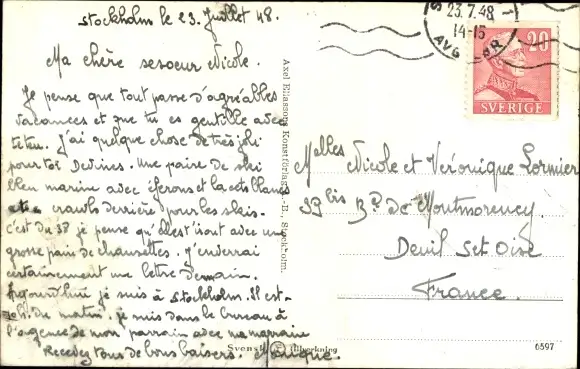 Stockholm le 23 Juillet 48.
Ma chère sesoeur Nicole.
Je pense que tout passe d'agréables
vacances et que tu es gentille avec
tetu. J'ai quelque chose de très joli
pour toi Devines. Une paire de ski
bleu marine avec éperons et la cote blanche
crawls derrière pour les skis.
c'est du 37 je pense qu'elles t'iront avec une
grosse pair de chaussettes. J'enverrai
certainement une lettre Demain.
Aujourd'hui je suis à Stockholm. Il est
du matin, je suis dans le bureau à
l'agence de mon parrain avec ma marraine
Recevez tous de bons baisers. Monique.
Axel Eliassons Konstförlag A.-B., Stockholm.
Svensk tillverkning
23.7.48
14-15
AVG
20
SVERIGE
Melles Nicole et Véronique Lormier
39 bis Bd De Montmorency
Deuil Set Oise
France.
6597